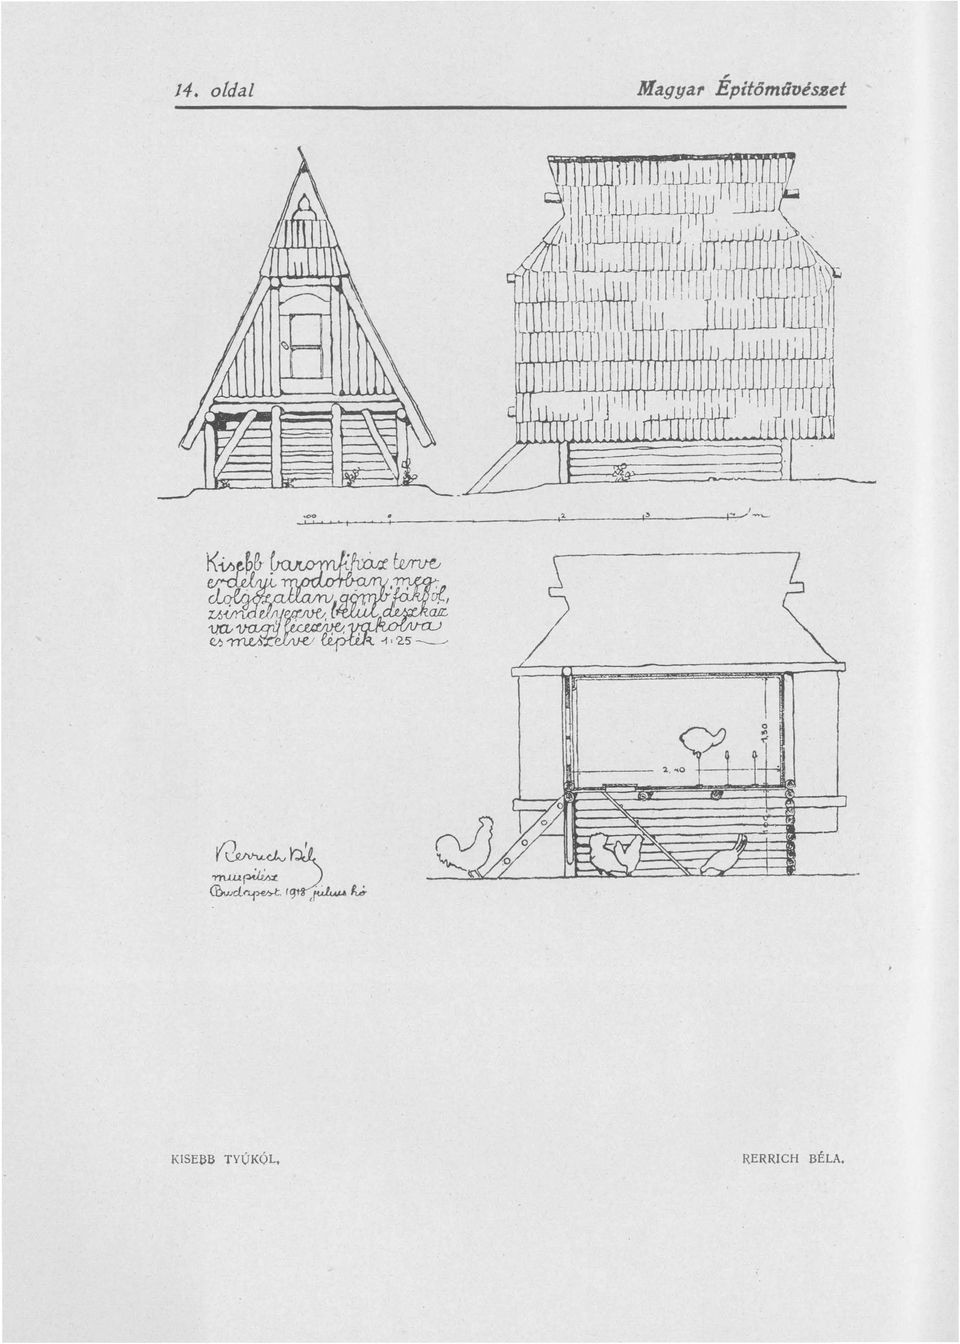 14. oldal Magyar Építőművészet
100 0 2 3 m
Kisebb baromfiház terve
erdélyi modorban, meg-
dolgozatlan gömb fákból,
zsindelyezve, belül deszkáz
va vagy lécezve, vakolva
és meszelve lépték 1:25
1,30
2,40
100
Rerrich Béla
műépítész
Budapest, 1918 július hó
KISEBB TYÚKÓL. RERRICH BÉLA.